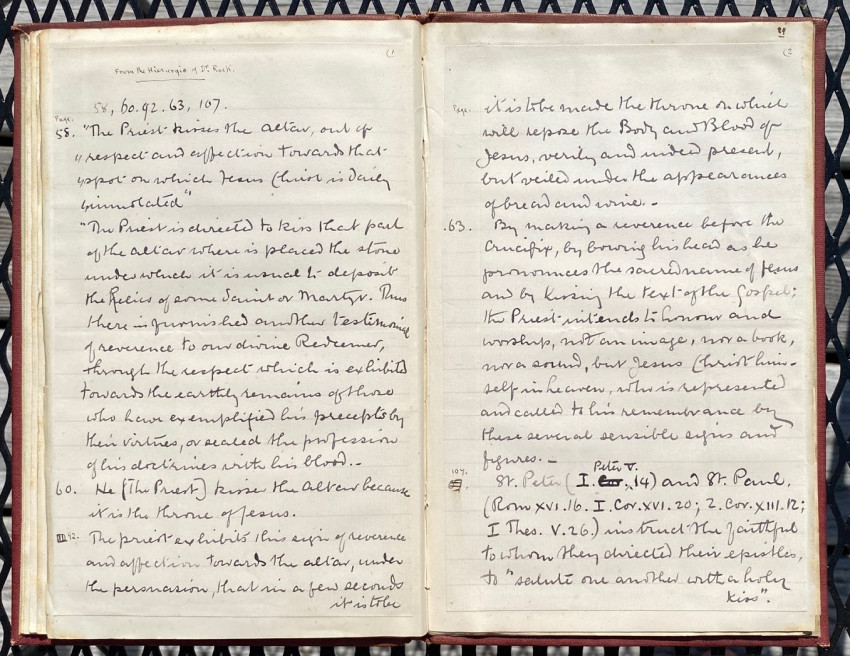 (1
From the Hierurgia of Dr. Rock.
58, 60. 92. 63, 107.
Page.
58. "The Priest kisses the altar, out of
"respect and affection towards that
"spot on which Jesus Christ is daily
"immolated"
"The Priest is directed to kiss that part
of the altar where is placed the stone
under which it is usual to deposit
the Relics of some Saint or Martyr. Thus
there is furnished another testimony
of reverence to our divine Redeemer,
through the respect which is exhibited
towards the earthly remains of those
who have exemplified his precepts by
their virtues, or sealed the profession
of his doctrines with his blood.-
60. He [The Priest] kisses the altar because
it is the throne of Jesus.
92. The priest exhibits this sign of reverence
and affection towards the altar, under
the persuasion, that in a few seconds
it is to be
(2
Page.
it is to be made the throne on which
will repose the Body and Blood of
Jesus, verily and indeed present,
but veiled under the appearances
of bread and wine.-
63. By making a reverence before the
Crucifix, by bowing his head as he
pronounces the sacred name of Jesus
and by kissing the text of the Gospel;
the Priest intends to honour and
worship, not an image, nor a book,
nor a sound, but Jesus Christ him-
self in heaven, who is represented
and called to his remembrance by
these several sensible signs and
figures.-
107. St. Peter (I. Peter V. 14) and St. Paul,
(Rom XVI.16. I. Cor. XVI. 20; 2. Cor. XIII. 12;
I Thes. V. 26.) instruct the faithful
to whom they directed their epistles,
to "salute one another with a holy
kiss".